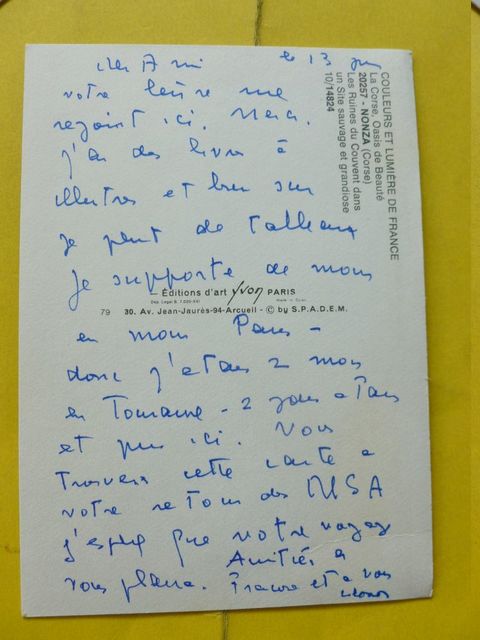 cher Ami le 13 juin
votre lettre me
rejoint ici. Merci.
j'ai des livres à
illustrer et bien sur
je peint de tableaux
je supporte de moins
en moins Paris -
donc j'etais 2 mois
en Touraine - 2 jours a Paris
et puis ici. Vous
trouverez cette carte a
votre retour des USA
j'espere que votre voyage
vous plaira. Amitiés a
France et a vous
COULEURS ET LUMIÈRE DE FRANCE
La Corse, Oasis de Beauté
20257 - NONZA (Corse)
Les Ruines du Couvent dans
un Site sauvage et grandiose
10/14824
Éditions d'art yvon PARIS
79 30. Av. Jean-Jaurès-94-Arcueil - © by S.P.A.D.E.M.